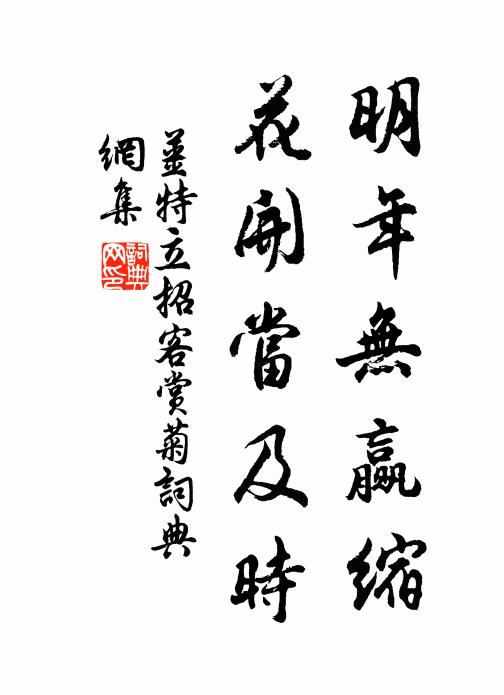 明年無贏縮
花開當及時
姜特立招客賞菊詞典
網集
詞典網印